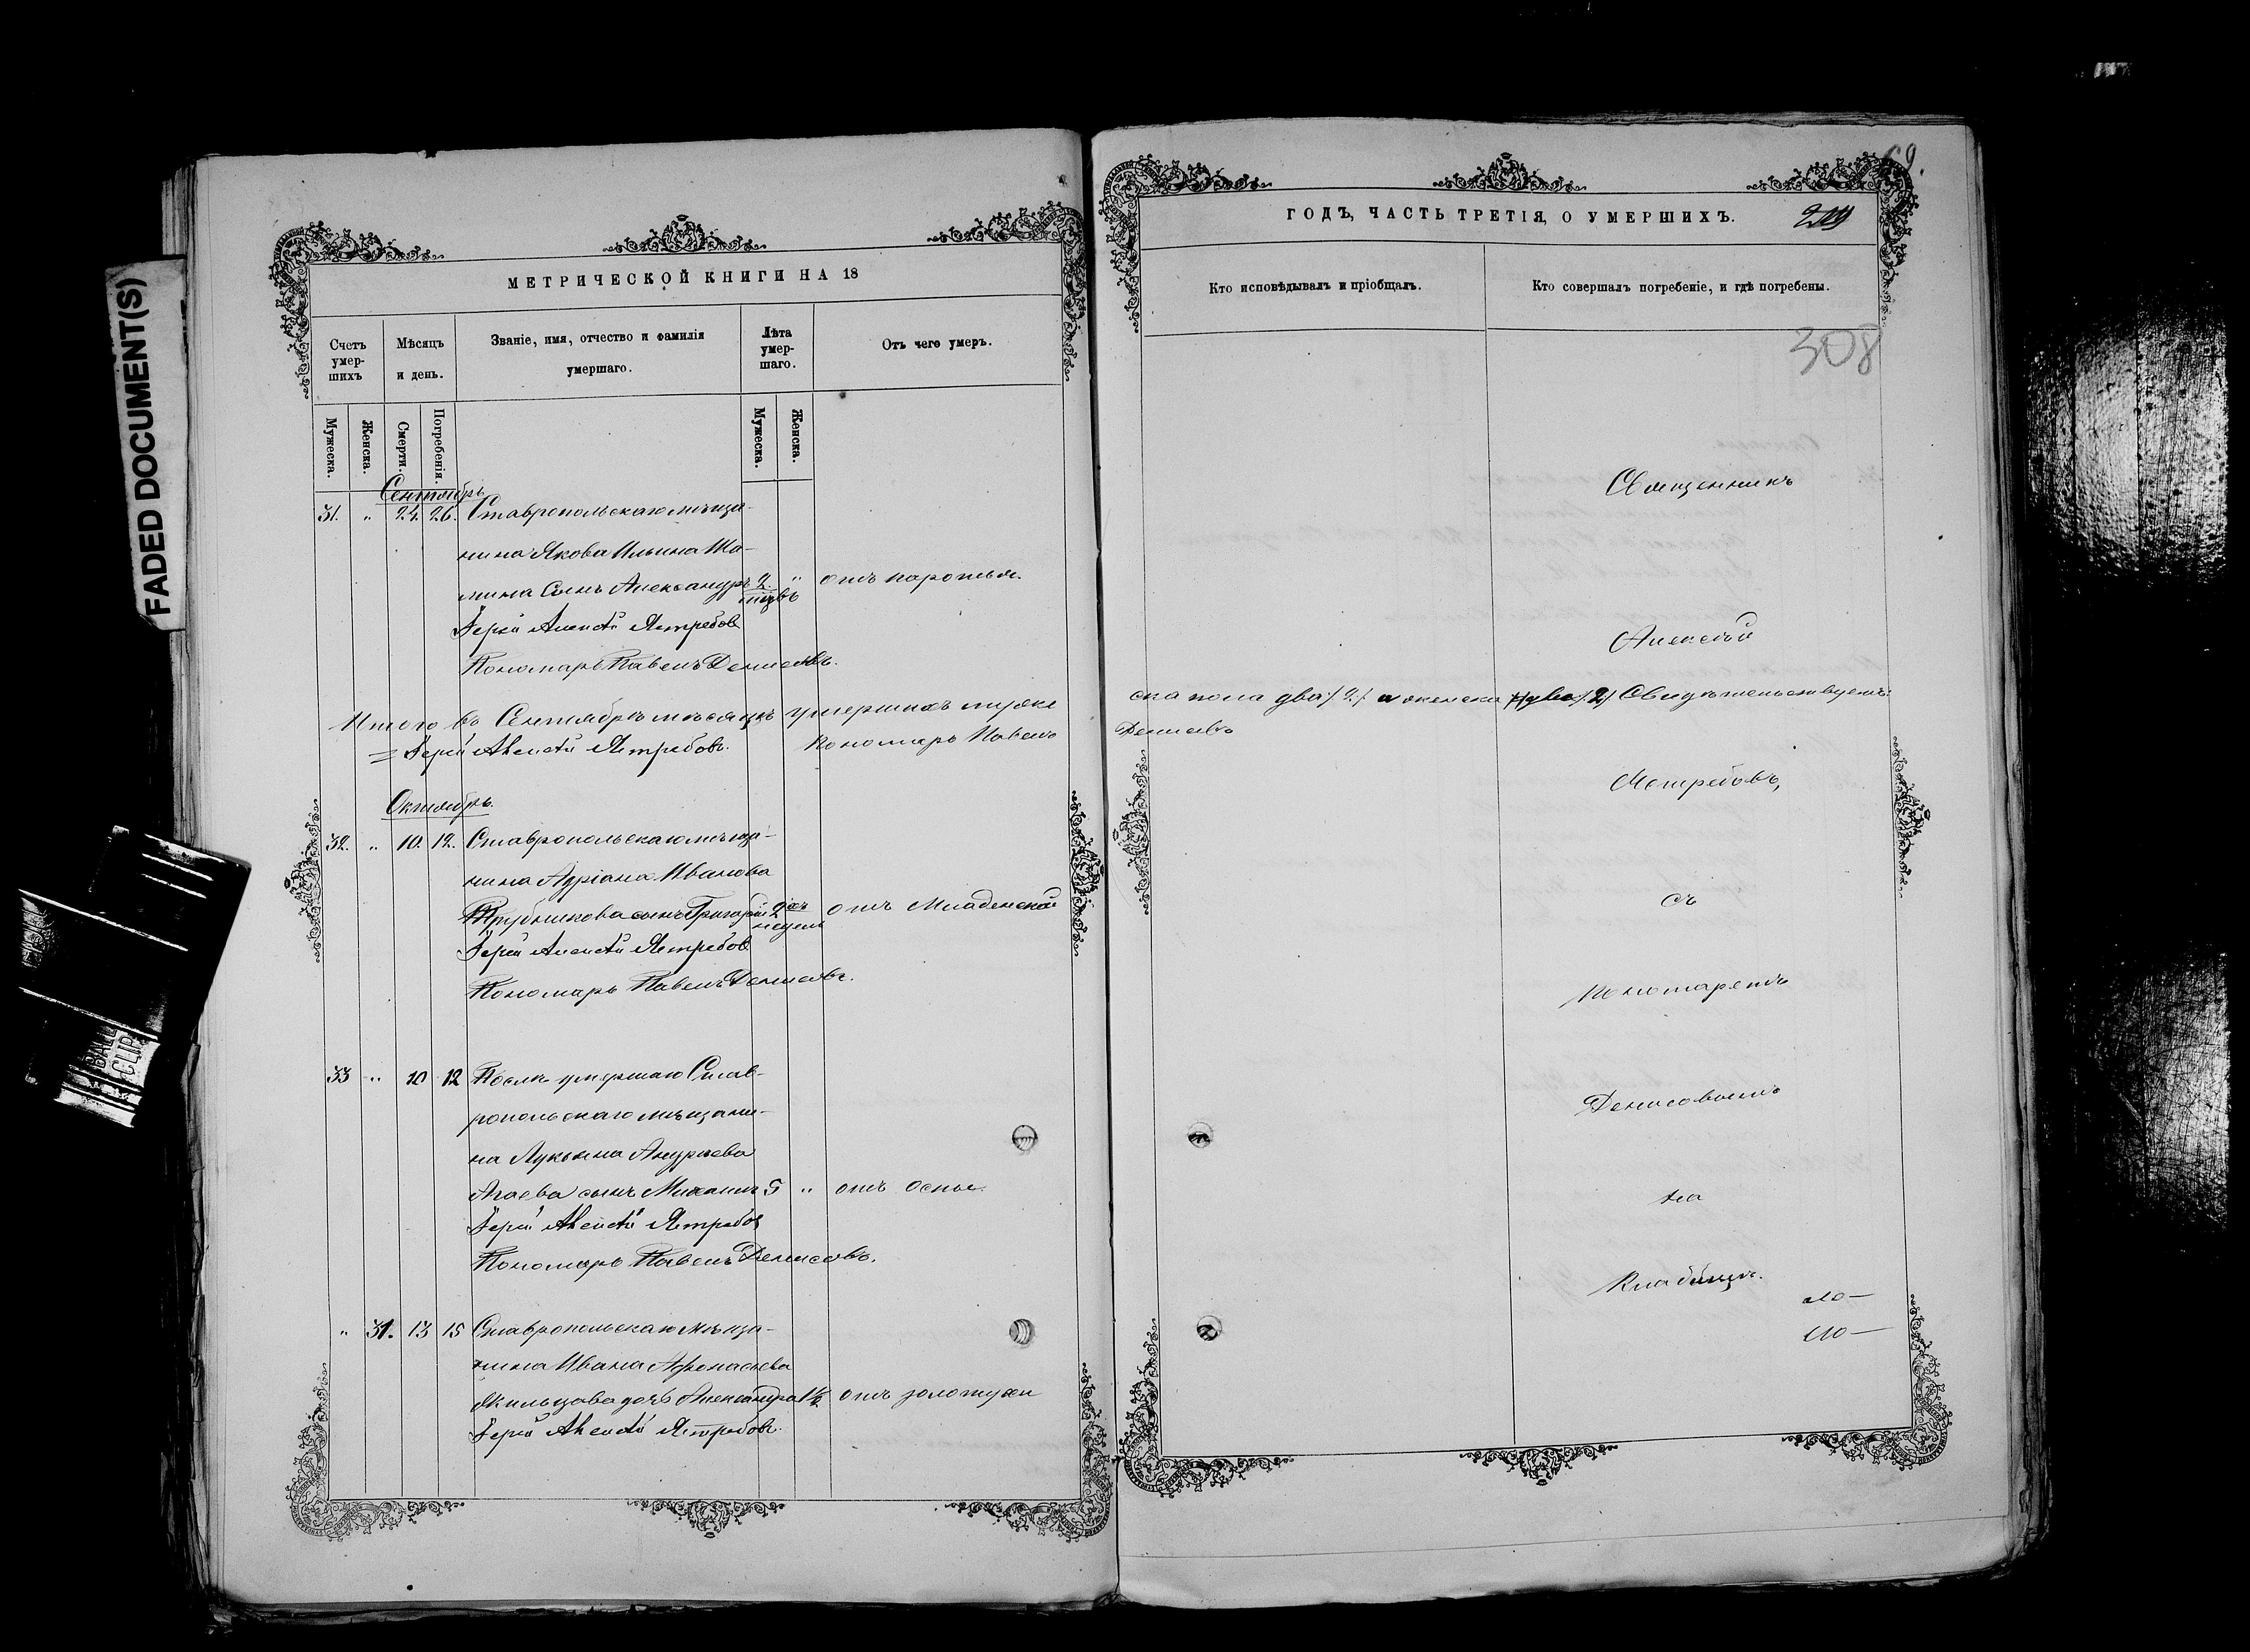 FADED DOCUMENT(S)
МЕТРИЧЕСКОЙ КНИГИ НА 18
Счетъ умер-шихъ
Мѣсяцъ и день.
Званіе, имя, отчество и фамилія умершаго.
Лѣта умер-шаго.
Отъ чего умеръ.
Мужеска.
Женска.
Смерти.
Погребенія.
Мужеска.
Женска.
Сентябрь
31. " 24. 26. Ставропольскаго мѣща-
нина Якова Ильина
сынъ Александръ 2 " отъ поротья.
Іерей Алексѣй Ястребовъ
Пономарь Павелъ Денисовъ.
Итого въ Сентябрѣ мѣсяцѣ умершихъ муже
= Іерей Алексѣй Ястребовъ. Пономарь Павелъ
Октябрь.
32. " 10. 12. Ставропольскаго мѣща-
нина Адріана Иванова
Трубникова сынъ Григорій 2хъ отъ Младенской
недель
Іерей Алексѣй Ястребовъ
Пономарь Павелъ Денисовъ.
33 " 10 12 Послѣ умершаго Став-
ропольскаго мѣщани-
на Лукьяна Андреева
Агаева сынъ Михаилъ 5 " отъ оспы.
Іерей Алексѣй Ястребовъ
Пономарь Павелъ Денисовъ.
" 31. 13 15 Ставропольскаго мѣща-
нина Ивана Афонасьева
дочь Александра 1½ отъ золотухи
Іерей Алексѣй Ястребовъ.
69.
ГОДЪ, ЧАСТЬ ТРЕТІЯ, О УМЕРШИХЪ.
Кто исповѣдывалъ и пріобщалъ.
Кто совершалъ погребеніе, и гдѣ погребены.
308
Священникъ
Алексѣй
ска пола два /2/ а женска два /2/ Свидѣтельствуемъ:
Денисовъ
Ястребовъ,
съ
пономаремъ
Денисовымъ
на
Кладбищѣ.